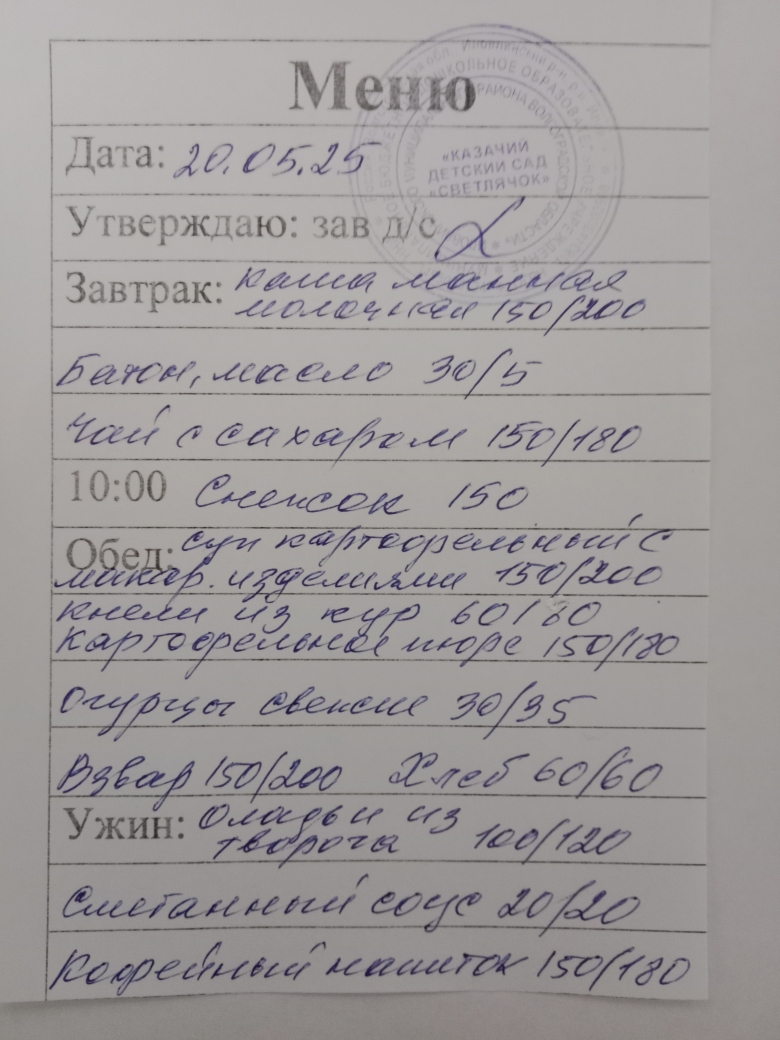 Меню
Дата: 20.05.25
«КАЗАЧИЙ
ДЕТСКИЙ САД
«СВЕТЛЯЧОК»
Утверждаю: зав д/с
Завтрак: каша манная
молочная 150/200
Батон, масло 30/5
Чай с сахаром 150/180
10:00 Снежок 150
Обед: суп картофельный с
макар. изделиями 150/200
кнели из кур 60/60
картофельное пюре 150/180
Огурцы свежие 30/35
Взвар 150/200 Хлеб 60/60
Ужин: Оладьи из
творога 100/120
Сметанный соус 20/20
Кофейный напиток 150/180